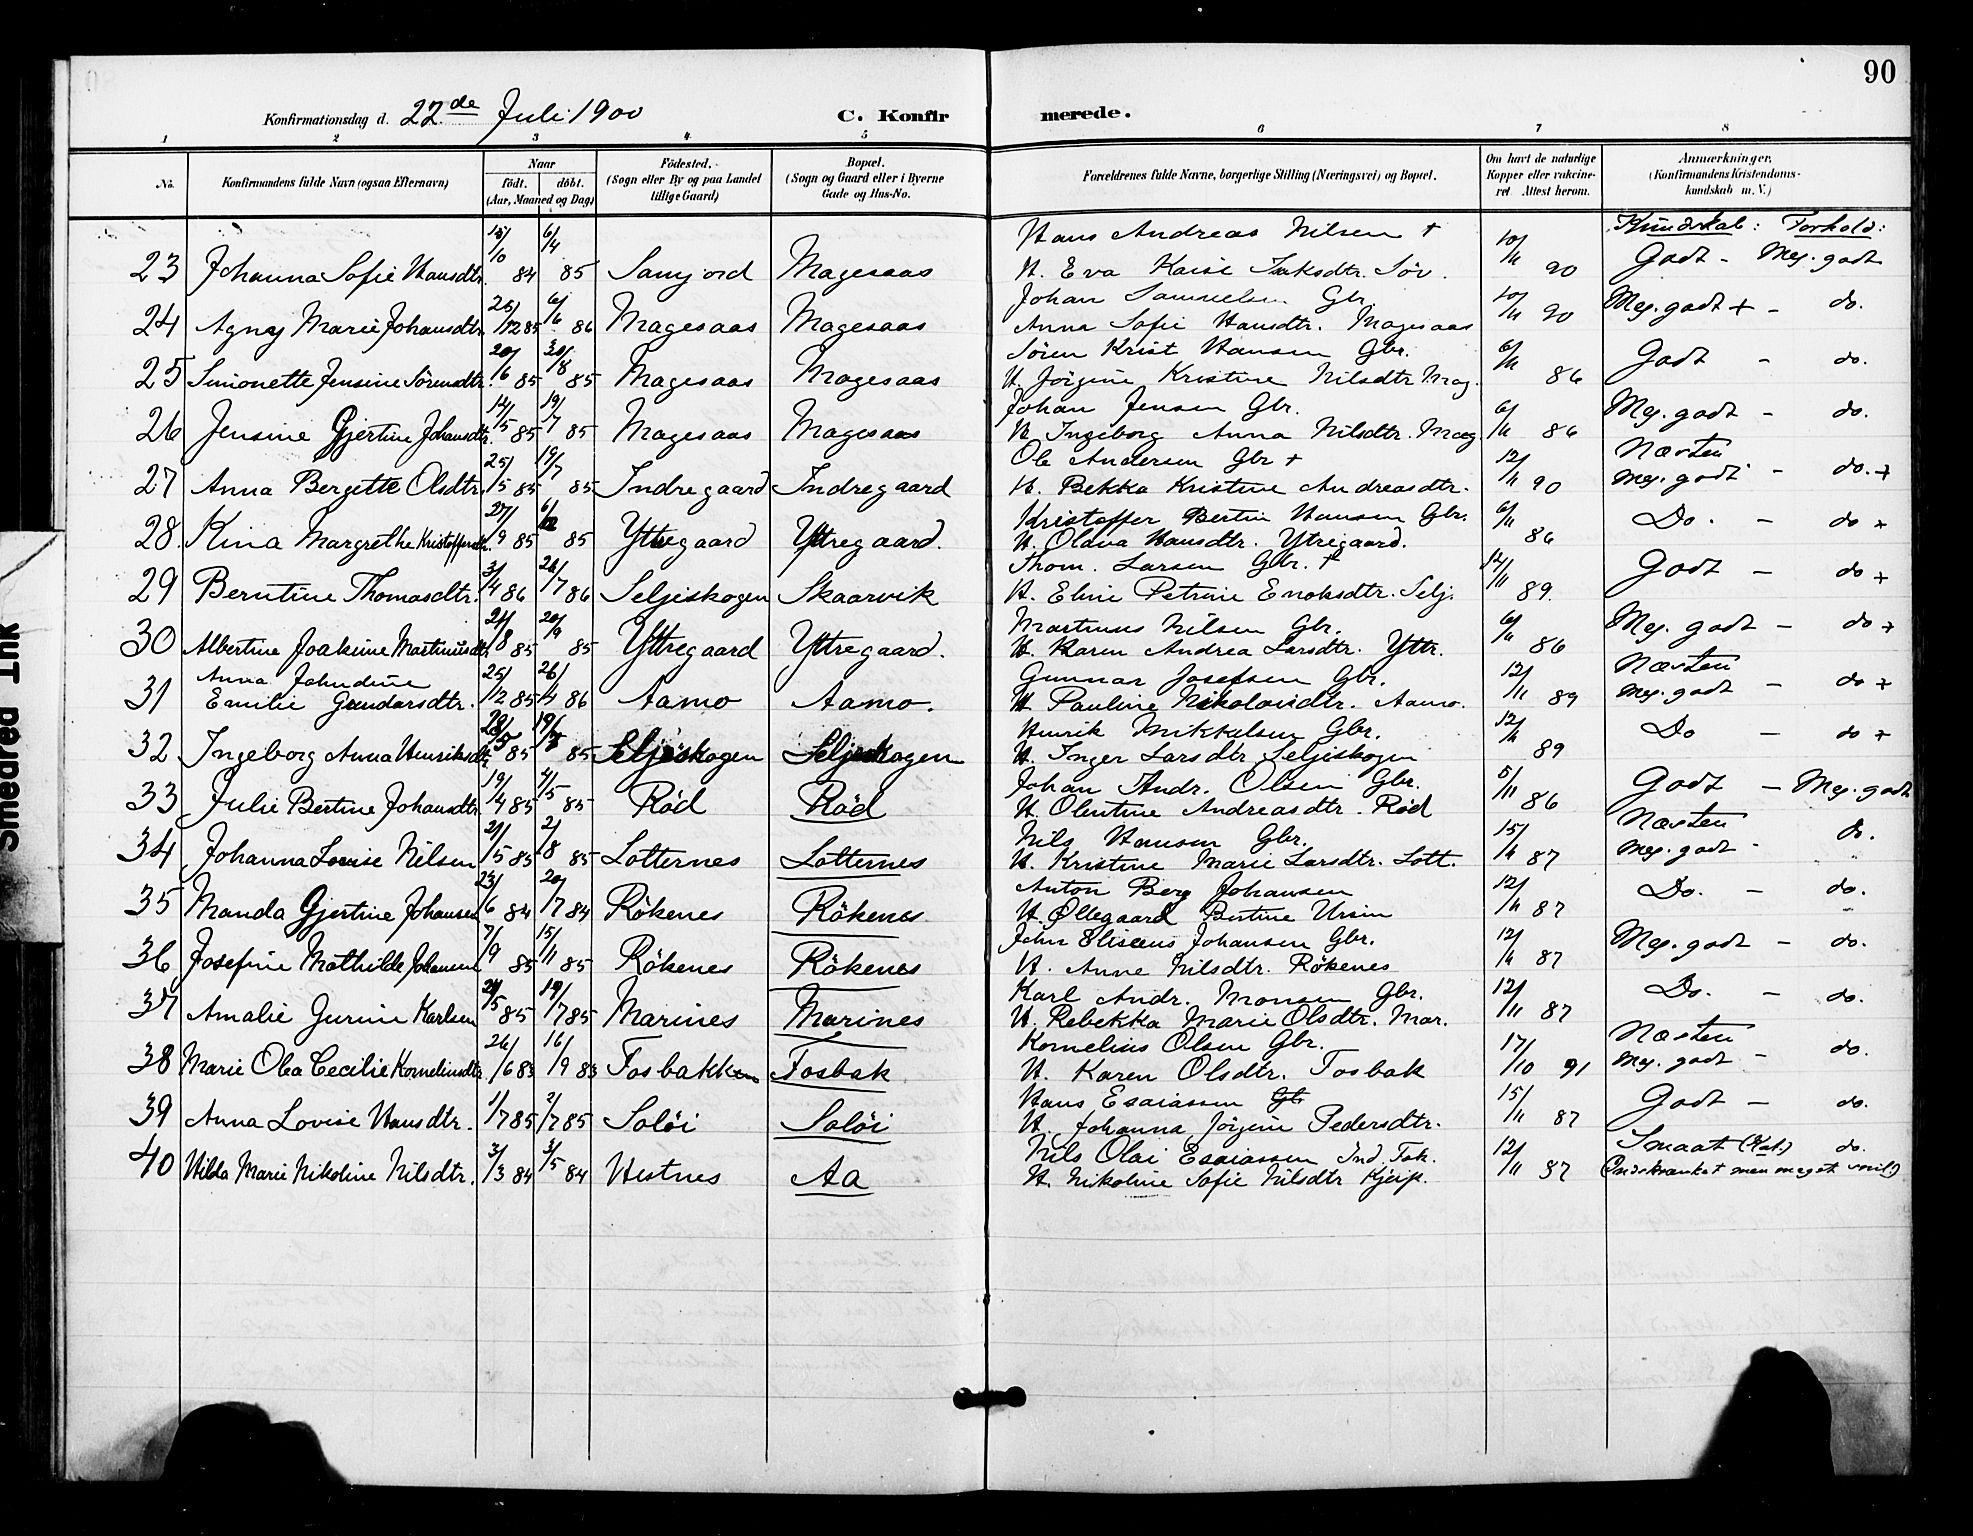 90
Konfirmationsdag d. 22de Juli 1900
C. Konfirmerede.
1 2 3 4 5 6 7 8
No.
Konfirmandens fulde Navn (ogsaa Efternavn)
Naar
födt. döbt.
(Aar, Maaned og Dag)
Födested.
(Sogn eller By og paa Landet
tillige Gaard)
Bopæl.
(Sogn og Gaard eller i Byerne
Gade og Hus-No.
Forældrenes fulde Navne, borgerlige Stilling (Næringsvei) og Bopæl.
Om havt de naturlige
Kopper eller vakcine-
ret Attest herom.
Anmærkninger,
(Konfirmandens Kristendoms-
kundskab m. V.)
Kundskab: Forhold:
Hans Andreas Nilsen †
23 Johanna Sofie Hansdtr. /10 84 6/4 85 Samjord Magesaas H. Eva Kaise Isaksdtr. Söv. 10/11 90 Godt - Meg. godt
Johan Samuelsen Gbr.
24 Agnes Marie Johansdtr. 26/12 85 6/6 86 Magesaas Magesaas Anna Sofie Hansdtr. Magesaas 10/11 90 Meg. godt + - do.
Sören Krist Hansen Gbr.
25 Simonette Jensine Sörensdtr. 20/6 85 30/8 85 Magesaas Magesaas H. Jörgine Kristine Nilsdtr Mag. 6/11 86 Godt - do.
Johan Jensen Gbr.
26 Jensine Gjertine Johansdtr. 14/5 85 19/7 85 Magesaas Magesaas H. Ingeborg Anna Nilsdtr. Mag. 6/11 86 Meg. godt - do.
Ole Andersen Gbr †
27 Anna Bergette Olsdtr. 25/5 85 19/7 85 Indregaard Indregaard H. Bekka Kristine Andreasdtr. 12/11 90 Næsten meg. godt - do. +
Kristoffer Bertin Hansen Gbr.
28. Kina Margrethe Kristoffersdtr. 27/9 85 6/12 85 Yttregaard Yttregaard. H. Olava Hansdtr. Ytregaard. 6/11 86 Do. - do +
Thom. Larsen Gbr. †
29 Berntine Thomasdtr. 3/4 86 26/7 86 Seljeskogen Skaarvik H. Eline Petrine Enoksdtr. Selj. 12/11 89. Godt - do +
Martinus Nilsen Gbr.
30 Albertine Joakime Martinusdtr. 21/8 85 20/9 85 Yttregaard Yttregaard. H. Karen Andrea Larsdtr. Yttr. 6/11 86 Meg. godt - do +
Anna Johndine
Gunnar Josefsen Gbr.
31 Emilie Gundarsdtr. 25/12 85 26/4 86 Aamo Aamo. H Pauline Nikolaisdtr. Aamo. 12/11 89 Næsten meg. godt - do +
Henrik Mikkelsen Gbr.
32 Ingeborg Anna Henriksdtr. 28/5 85 19/7 85 Seljeskogen Seljeskogen H. Inger Larsdtr Seljeskogen 12/11 89 Do - do +
Johan Andr. Olsen Gbr.
33 Julie Bertine Johansdtr. 19/4 85 4/5 85 Röd Röd H. Olentine Andreasdtr. Röd 5/11 86 Godt - Meg. godt
Nils Hansen Gbr.
34 Johanna Lovise Nilsen 21/5 85 2/8 85 Lotternes Lotternes H. Kristine Marie Larsdtr. Lott. 15/11 87 Næsten meg. godt - do.
Anton Berg Johansen
35 Manda Gjertine Johansen 23/6 84 20/7 84 Rökenes Rökenes. H. Ollegaard Bertine Ursin 12/11 87 Do. - do.
John Eliseus Johansen Gbr.
36 Josefine Mathilde Johansen 7/9 85 15/11 85 Rökenes Rökenes H. Anne Nilsdtr. Rökenes 12/11 87 Meg. godt - do.
Karl Andr. Monsen Gbr.
37 Amalie Jurine Karlsen 21/5 85 19/7 85 Marines Marines H. Rebekka Marie Olsdtr. Mar. 12/11 87 Do. - do.
Kornelius Olsen Gbr.
38 Marie Olea Cecilie Korneliusdtr. 26/6 83 16/9 83 Fosbakken Fosbak H. Karen Olsdtr. Fosbak 17/10 91 Næsten meg. godt - do.
Hans Esaiassen Gb
39 Anna Lovise Hansdtr. 1/7 85 2/7 85 Solöi Solöi H. Johanna Jörgine Pedersdtr. 15/11 87 Godt - do.
Nils Olai Esaiassen Ind. Fok.
40 Hilda Marie Nikoline Nilsdtr. 3/3 84 3/5 84 Hestnes Aa H. Nikoline Sofie Nilsdtr Kjeip. 12/11 87 Smaat (Kat.) do.
(Indskrænket men meget villig)
Smedred Ink